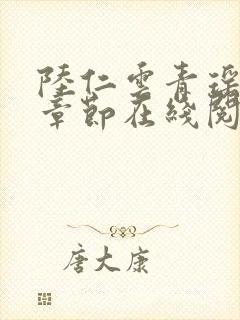 陸仁雲青瑤
章節在綫閱
唐大康